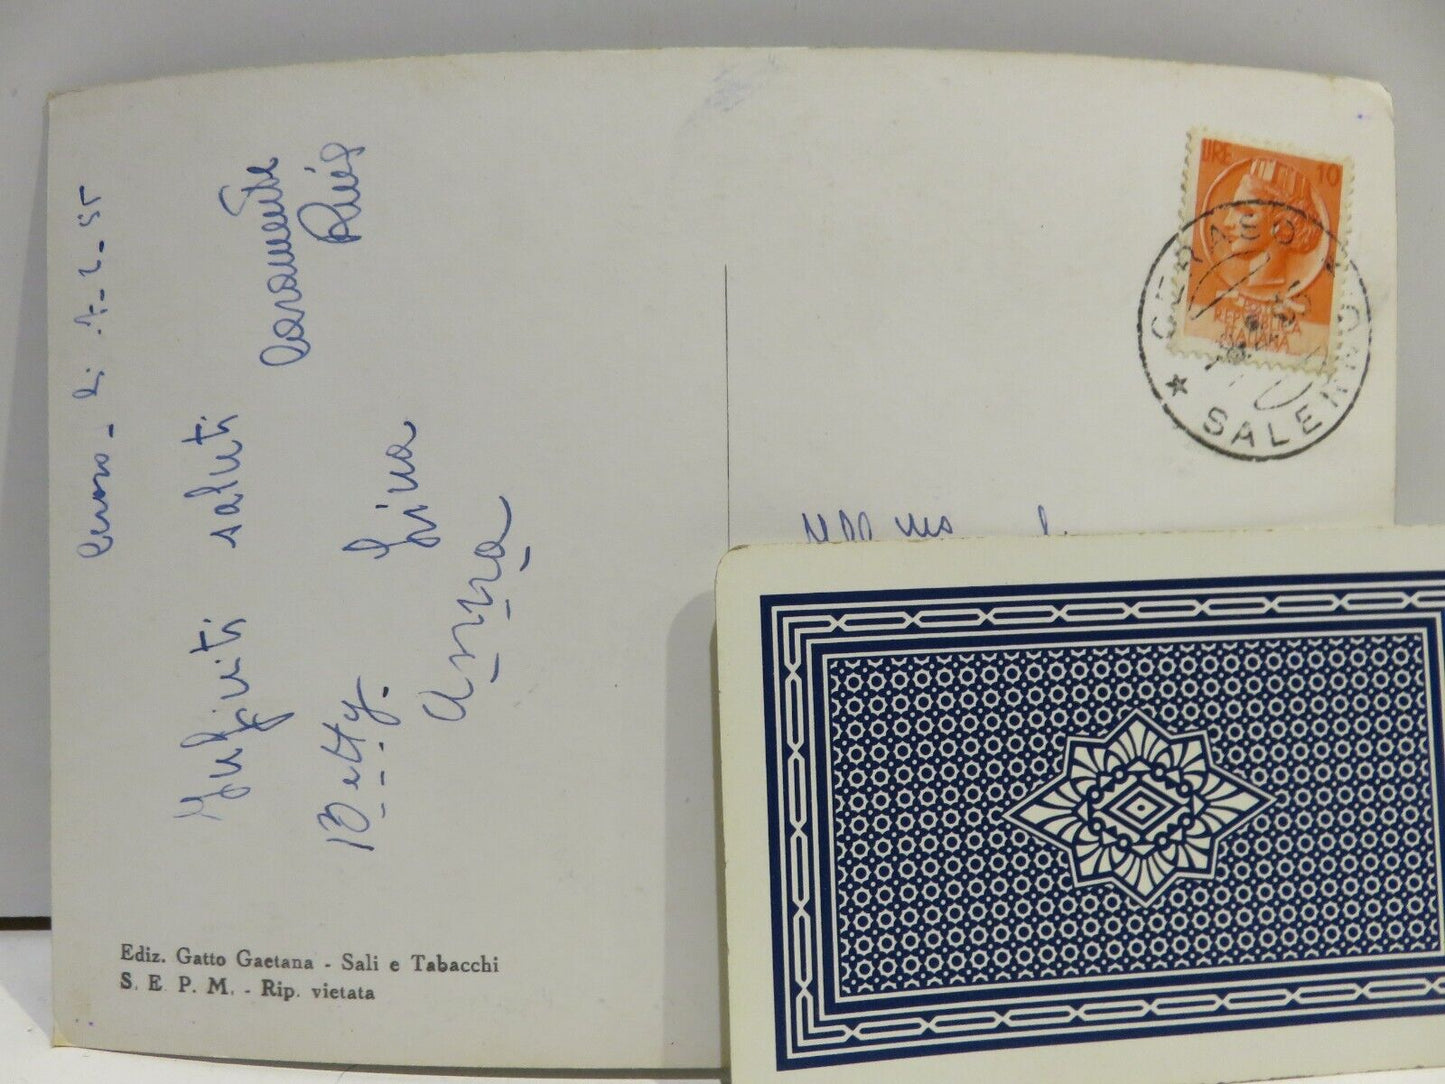 li 7-2-55
Infiniti saluti
caramente
Betty.
Lina
Anna
Ediz. Gatto Gaetana - Sali e Tabacchi
S. E. P. M. - Rip. vietata
LIRE 10
REPUBBLICA
ITALIANA
CERASO
SALERNO